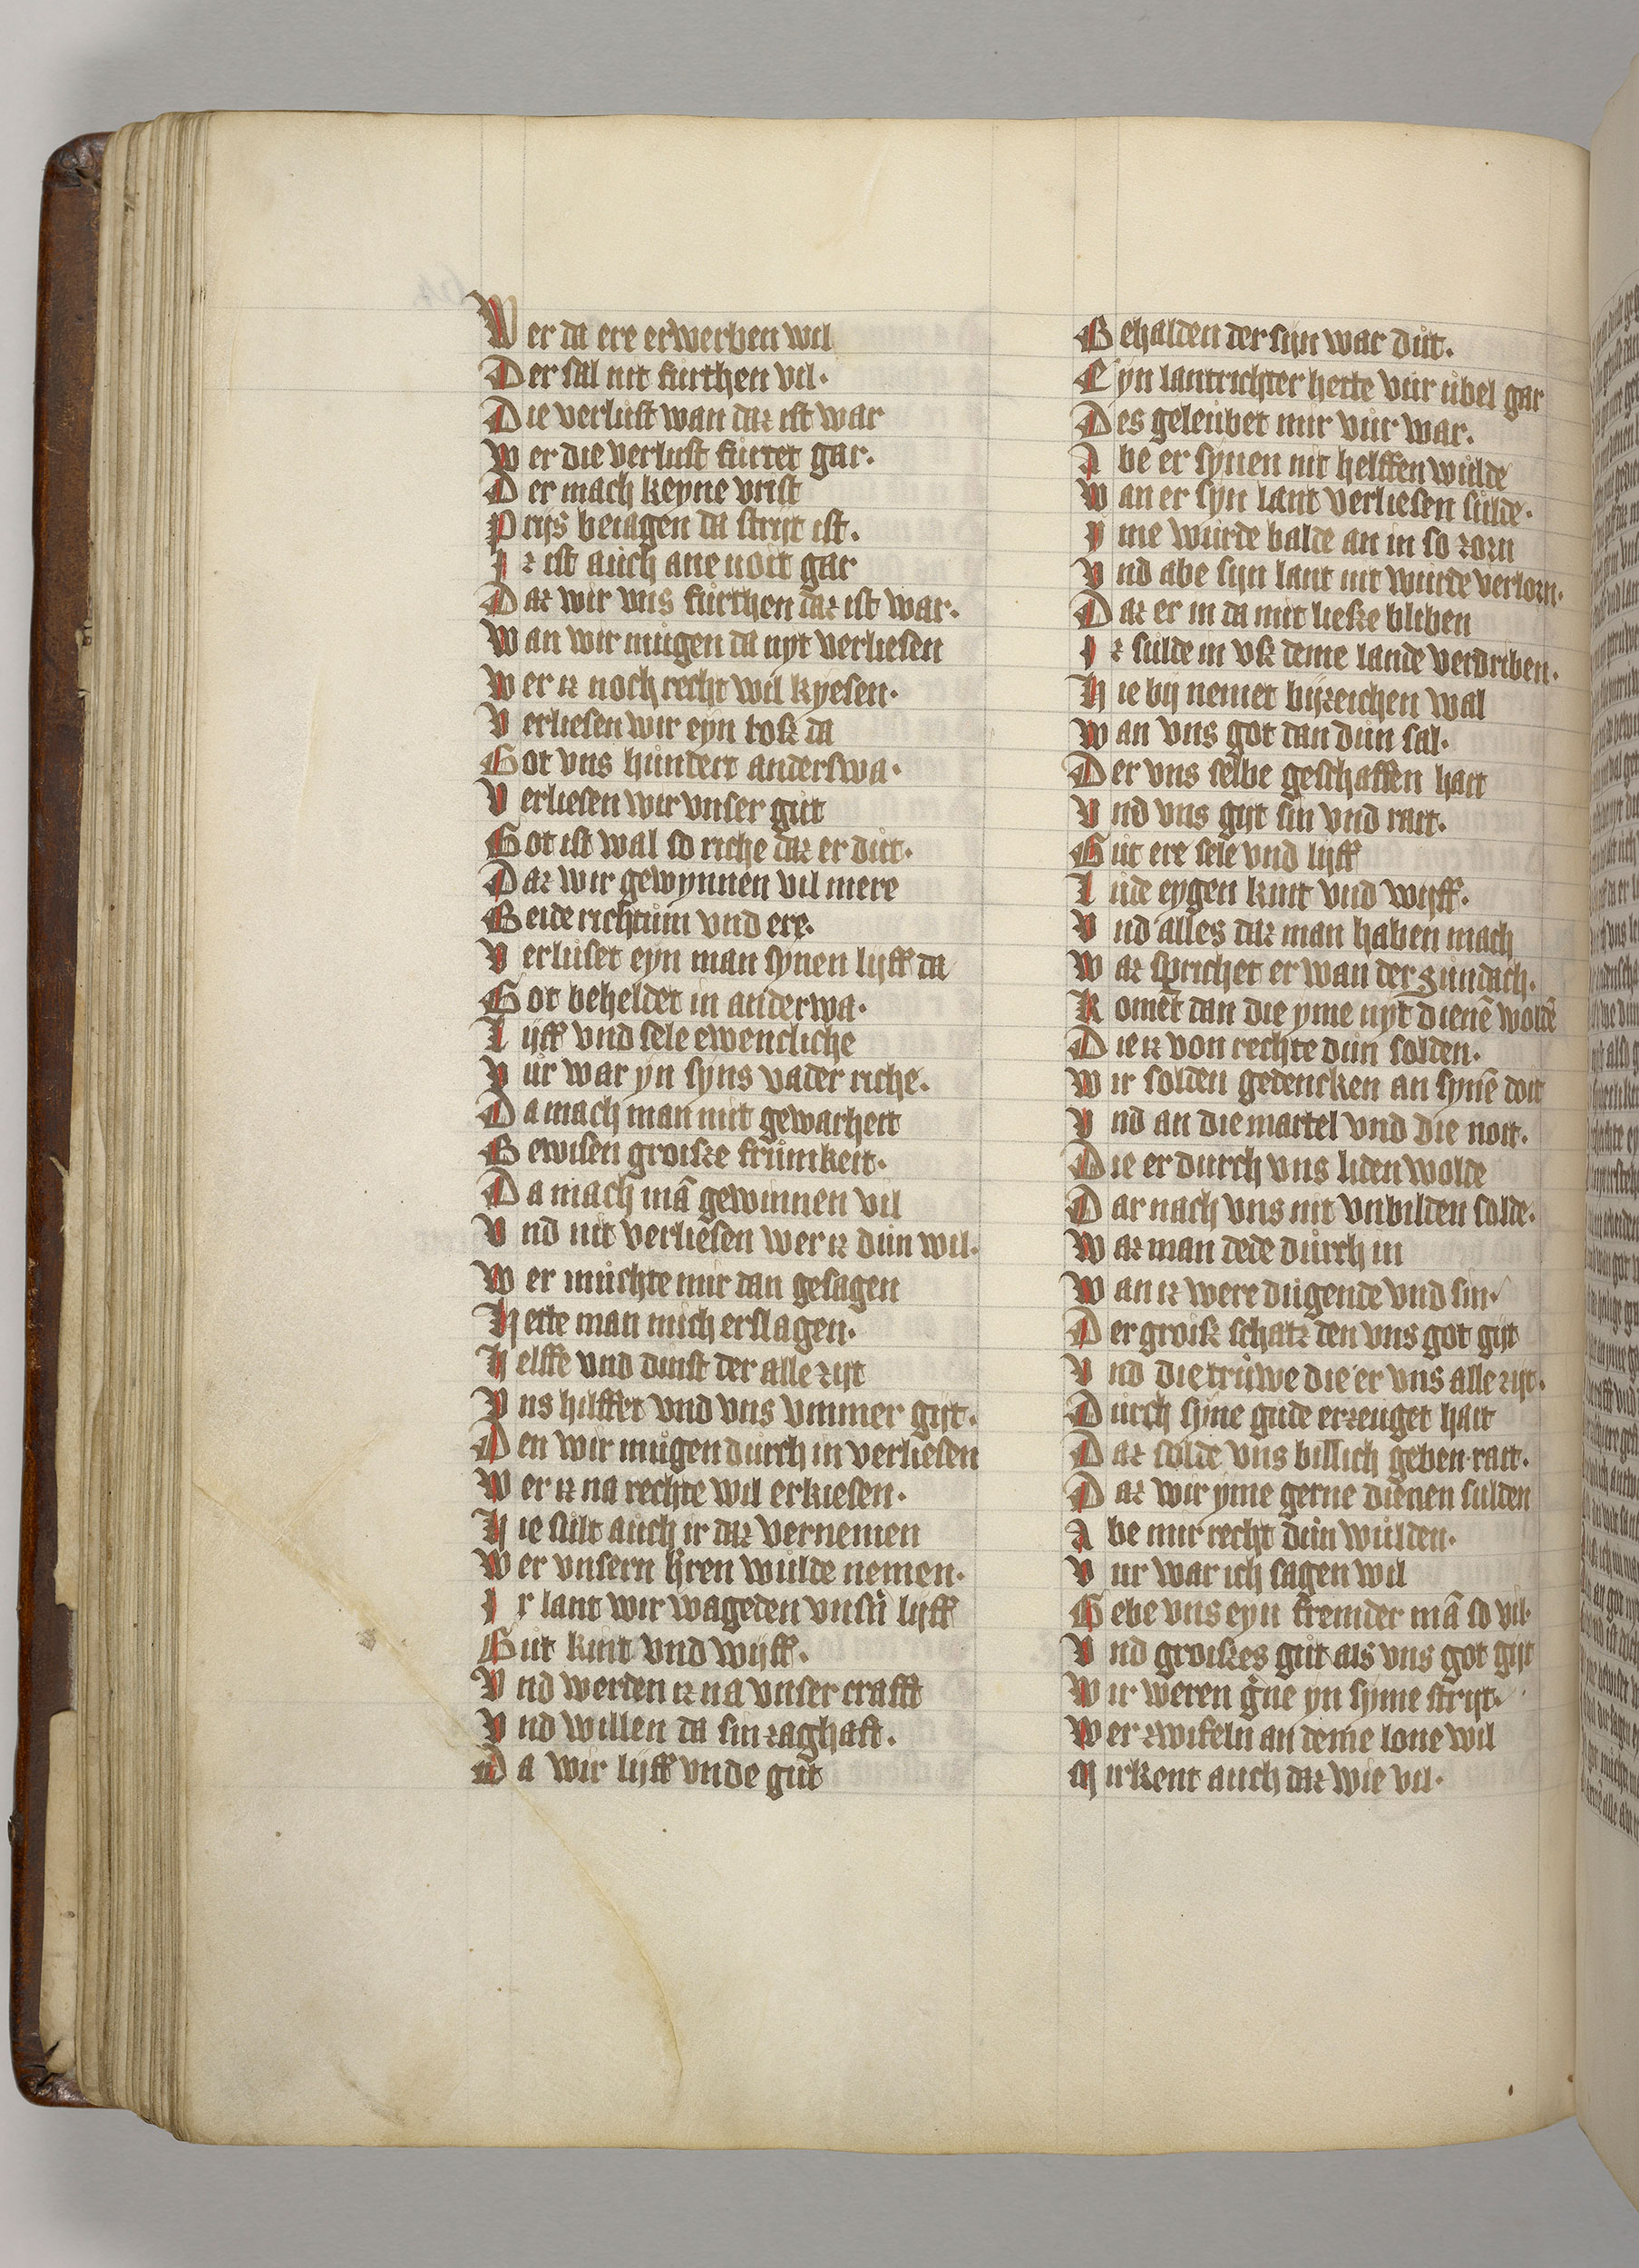 Wer da ere erwerben wil
Der sal nit furthen vil.
Die verlust wan daz ist war
Wer die verlust furtet gar.
Der mach keyne vrist
Prijs beiagen da strijt ist.
Iz ist auch ane noit gar
Daz wir vns furthen daz ist war.
Wan wir mugen da nyt verliesen
Wer iz noch recht wil kyesen.
Verliesen wir eyn roß da
Got vns hundert anderswa.
Verliesen wir vnser gut
Got ist wal so riche daz er dut.
Daz wir gewynnen vil mere
Beide richtum vnd ere.
Verluset eyn man synen lijff da
Got beheldet in anderwa.
Lijff vnd sele ewencliche
Vur war yn syns vader riche.
Da mach man mit gewarheit
Bewisen groiße frumkeit.
Da mach mā gewinnen vil
Vnd nit verliesen wer iz dun wil.
Wer muchte mir dan gesagen
Hette man mich erslagen.
Helffe vnd dinst der alle zijt
Vns hilffet vnd vns vmmer gijt.
Den wir mugen durch in verliesen
Wer iz na rechte wil erkiesen.
Hie sult auch ir daz vernemen
Wer vnsern hren wulde nemen.
Ir lant wir wageden vnsn lijff
Gut kint vnd wijff.
Vnd werden iz na vnser crafft
Vnd willen da sin zaghaft.
Da wir lijff vnde gut
Behalden der syn war dut.
Eyn lantrichter hette vur ubel gar
Des geleubet mir vur war.
Abe er synen nit helffen wulde
Wan er syn lant verliesen sulde.
Ime wurde balde an in so zorn
Vnd abe syn lant nit wurde verlorn.
Daz er in da mit ließe bliben
Iz sulde in vß deme lande verdriben.
Hie bij nemet bijzeichen wal
Wan vns got dan dun sal.
Der vns selbe geschaffen hait
Vnd vns gijt sin vnd rait.
Gut ere sele vnd lijff
Lude eygen kint vnd wijff.
Vnd alles daz man haben mach
Waz sprichet er wan der sundach.
Komēt dan die yme nyt dienē woldē
Die iz von rechte dun solden.
Wir solden gedencken an synē doit
Vnd an die martel vnd die noit.
Die er durch vns liden wolde
Dar nach vns nit vnbilden solde.
Waz man dede durch in
Wan iz were dugende vnd sin.
Der groiß schatz den vns got gijt
Vnd die truwe die er vns alle zijt.
Durch syne gude erzeuget hait
Daz solde vns billich geben rait.
Daz wir yme gerne dienen sulden
Abe mir recht dun wulden.
Vur war ich sagen wil
Gebe vns eyn fremder mā so vil.
Vnd groißes gut als vns got gijt
Wir weren gne yn syme strijt.
Wer zwifeln an deme lone wil
Mirkent auch daz wie vil.